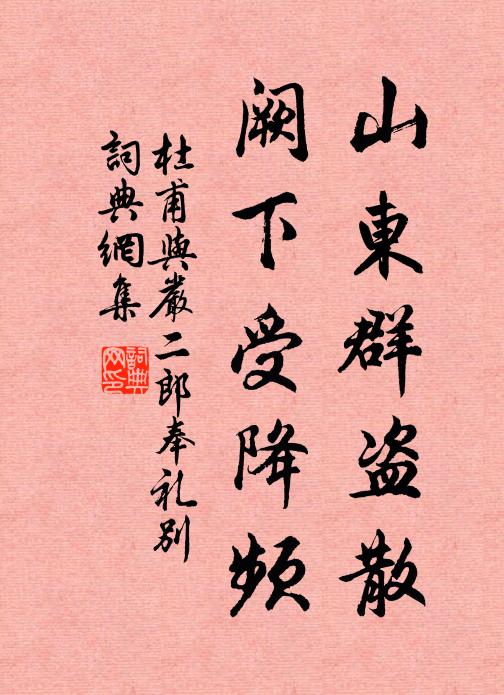 山東群盗散
闕下受降頻
杜甫與嚴二郎奉礼別
詞典網集
詞典
网印